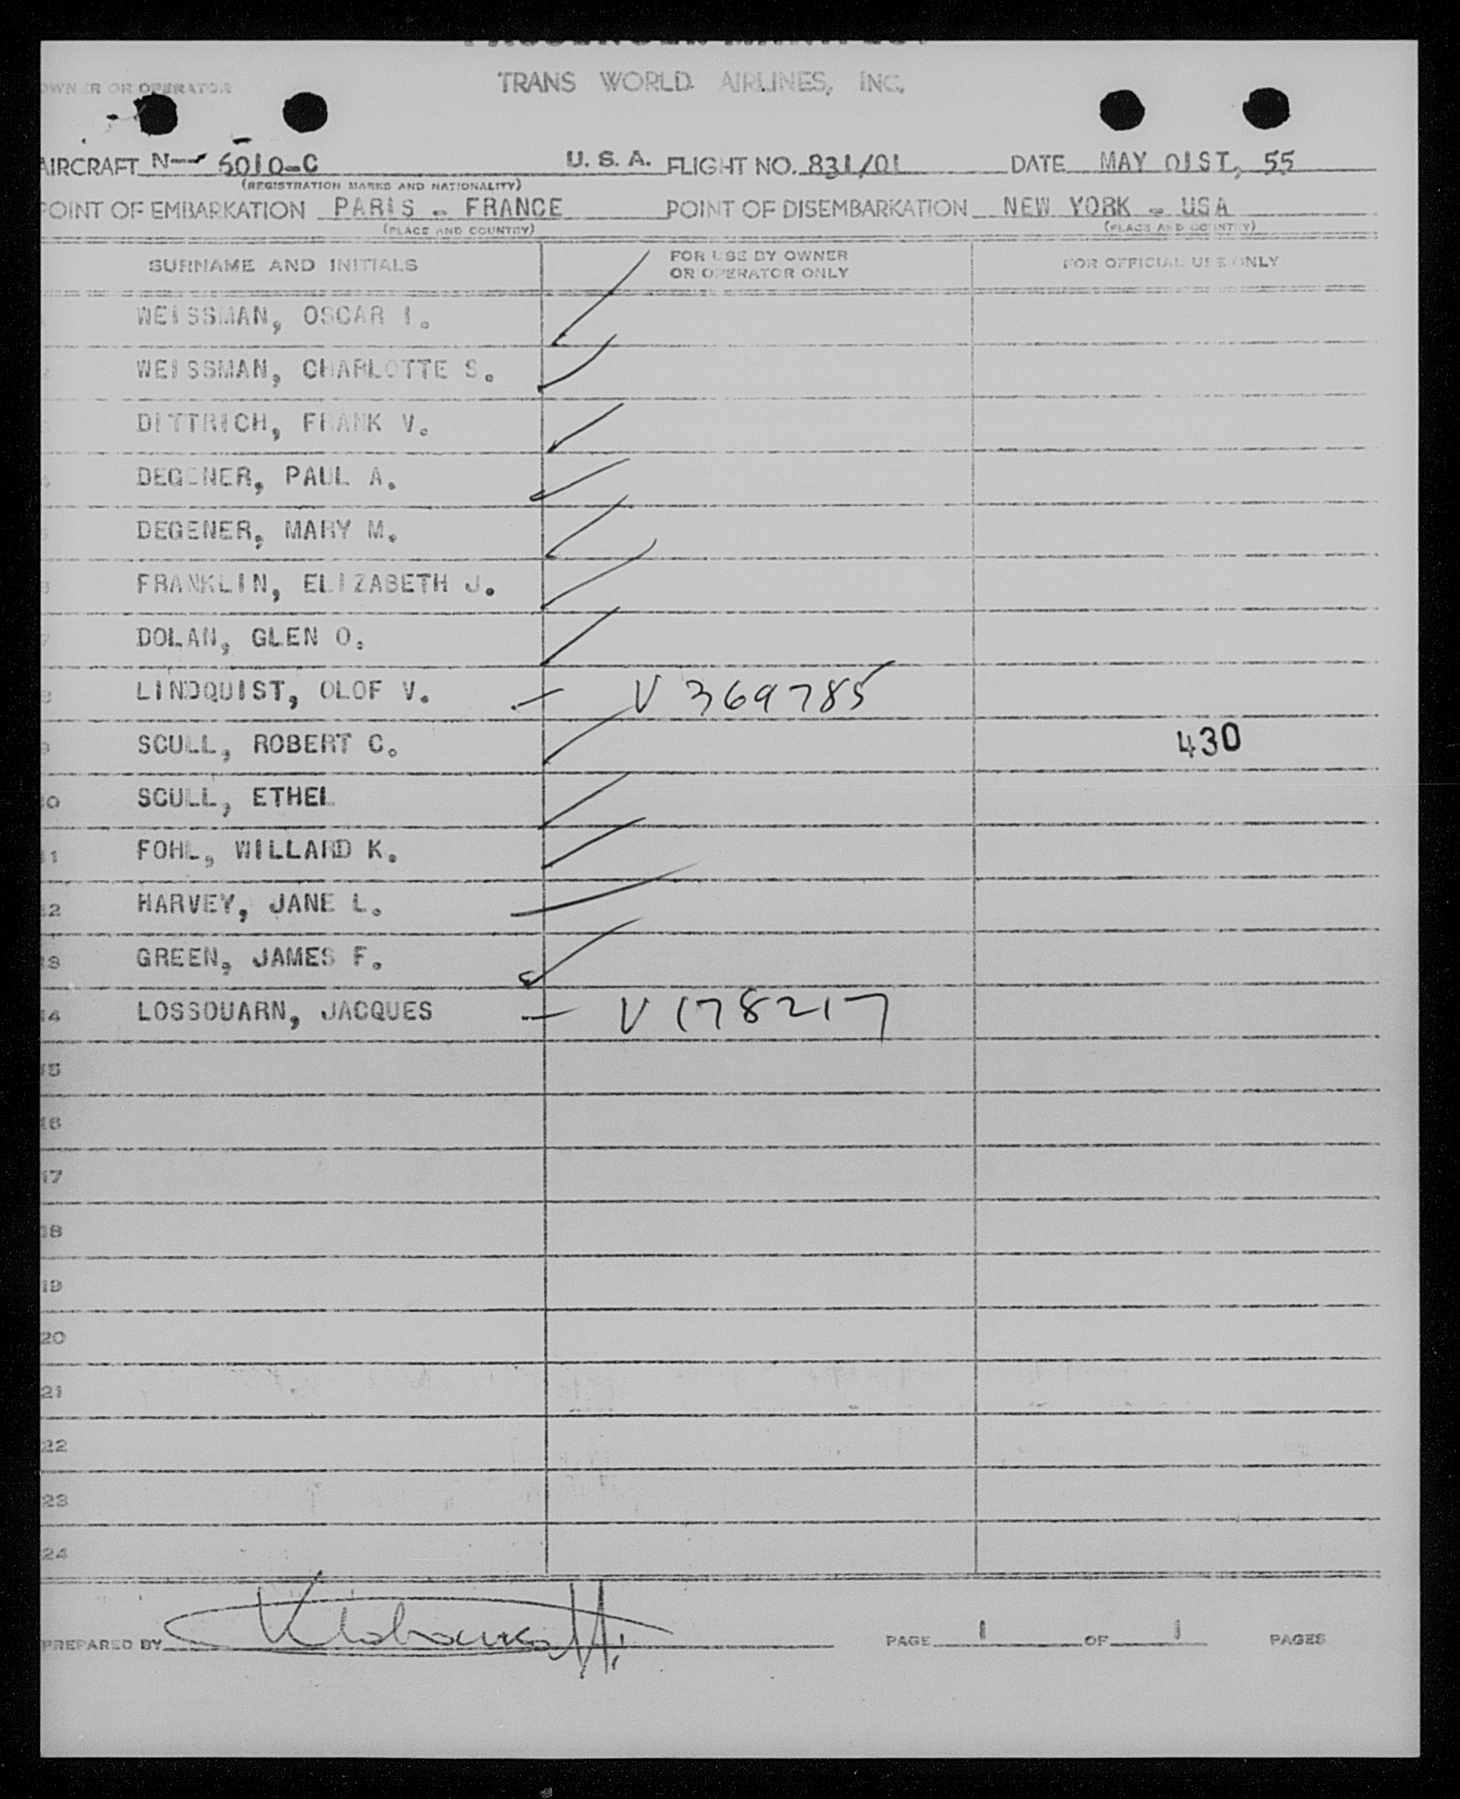 PASSENGER MANIFEST
OWNER OR OPERATOR TRANS WORLD AIRLINES, INC.
AIRCRAFT N-- 6010-C U. S. A. FLIGHT NO. 831/01 DATE MAY 01ST, 55
(REGISTRATION MARKS AND NATIONALITY)
POINT OF EMBARKATION PARIS - FRANCE POINT OF DISEMBARKATION NEW YORK - USA
(PLACE AND COUNTRY) (PLACE AND COUNTRY)
SURNAME AND INITIALS FOR USE BY OWNER OR OPERATOR ONLY FOR OFFICIAL USE ONLY
WEISSMAN, OSCAR I.
2 WEISSMAN, CHARLOTTE S.
DITTRICH, FRANK V.
4 DEGENER, PAUL A.
5 DEGENER, MARY M.
6 FRANKLIN, ELIZABETH J.
7 DOLAN, GLEN O.
8 LINDQUIST, OLOF V. V 369785
9 SCULL, ROBERT C. 430
10 SCULL, ETHEL
11 FOHL, WILLARD K.
12 HARVEY, JANE L.
13 GREEN, JAMES F.
14 LOSSOUARN, JACQUES V 178217
15
16
17
18
19
20
21
22
23
24
PREPARED BY PAGE 1 OF 1 PAGES